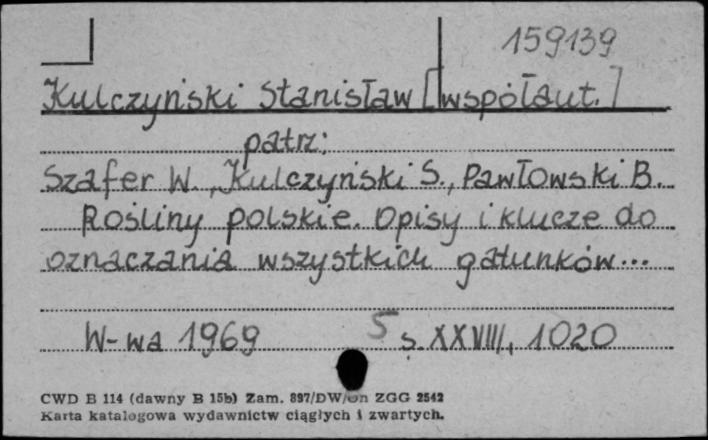 159139
Kulczyński Stanisław [współaut.]
patrz:
Szafer W., Kulczyński S., Pawłowski B.
Rośliny polskie. Opisy i klucze do
oznaczania wszystkich gatunków...
W-wa 1969 5 s. XXVIII, 1020
CWD B 114 (dawny B 15b) Zam. 897/DW/on ZGG 2542
Karta katalogowa wydawnictw ciągłych i zwartych.